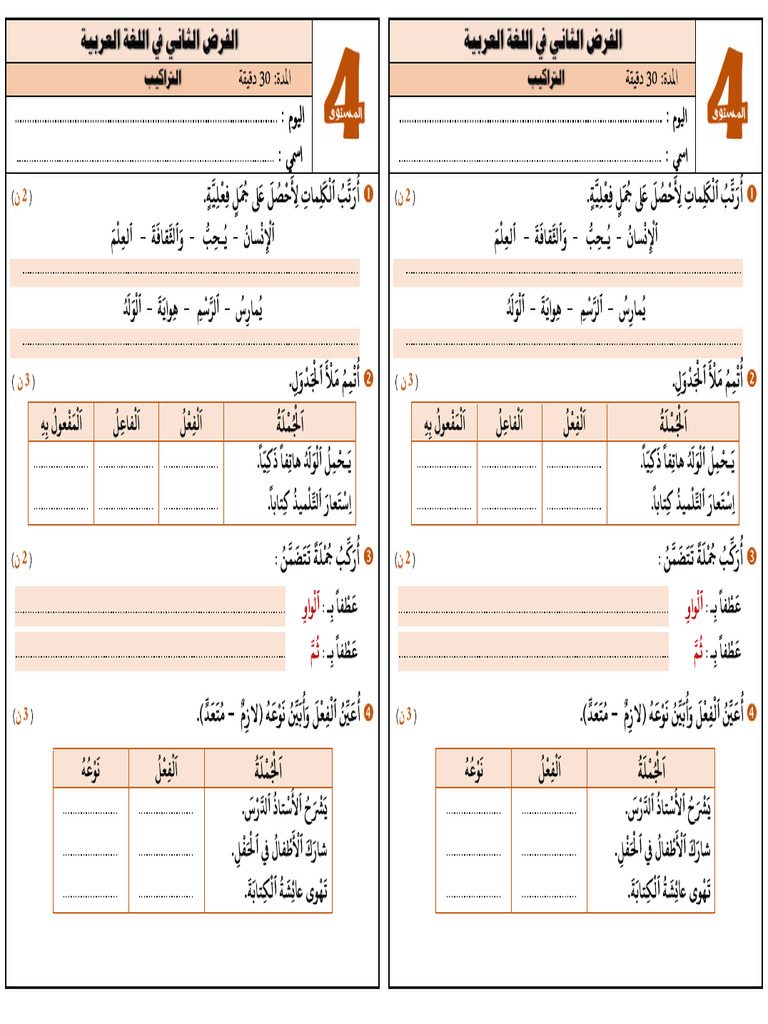 الفرض الثاني في اللغة العربية
المدة: 30 دقيقة التراكيب
4 المستوى
اليوم : ......................................................
اسمي : ......................................................
❶ أُرَتِّبُ ٱلْكَلِماتِ لِأَحْصُلَ عَلى جُمَلٍ فِعْلِيَّةٍ. (2 ن)
اَلْإِنْسانُ - يُـحِبُّ - وَٱلثَّقافَةَ - اَلعِلْمَ
......................................................
يُمارِسُ - اَلرَّسْمِ - هِوايَةَ - اَلْوَلَدُ
......................................................
❷ أُتْمِمُ مَلْأَ ٱلْجَدْوَلِ. (3 ن)
اَلْجُمْلَةُ اَلْفِعْلُ اَلْفاعِلُ اَلْمَفْعولُ بِهِ
يَـحْمِلُ ٱلْوَلَدُ هاتِفاً ذَكِيّاً. .................. .................. ..................
اِسْتَعارَ ٱلتِّلْميذُ كِتاباً. .................. .................. ..................
❸ أُرَكِّبُ جُمْلَةً تَتَضَمَّنُ : (2 ن)
عَطْفاً بِـ : اَلْواوِ ......................................................
عَطْفاً بِـ : ثُمَّ ......................................................
❹ أُعَيِّنُ ٱلْفِعْلَ وَأُبَيِّنُ نَوْعَهُ (لازِمٌ - مُتَعَدٍّ). (3 ن)
اَلْجُمْلَةُ اَلْفِعْلُ نَوْعُهُ
يَشْرَحُ ٱلأُسْتاذُ ٱلدَّرْسَ. .................. ..................
شارَكَ ٱلْأَطْفالُ في ٱلْحَفْلِ. .................. ..................
تَهْوى عائِشَةُ ٱلْكِتابَةَ. .................. ..................
الفرض الثاني في اللغة العربية
المدة: 30 دقيقة التراكيب
4 المستوى
اليوم : ......................................................
اسمي : ......................................................
❶ أُرَتِّبُ ٱلْكَلِماتِ لِأَحْصُلَ عَلى جُمَلٍ فِعْلِيَّةٍ. (2 ن)
اَلْإِنْسانُ - يُـحِبُّ - وَٱلثَّقافَةَ - اَلعِلْمَ
......................................................
يُمارِسُ - اَلرَّسْمِ - هِوايَةَ - اَلْوَلَدُ
......................................................
❷ أُتْمِمُ مَلْأَ ٱلْجَدْوَلِ. (3 ن)
اَلْجُمْلَةُ اَلْفِعْلُ اَلْفاعِلُ اَلْمَفْعولُ بِهِ
يَـحْمِلُ ٱلْوَلَدُ هاتِفاً ذَكِيّاً. .................. .................. ..................
اِسْتَعارَ ٱلتِّلْميذُ كِتاباً. .................. .................. ..................
❸ أُرَكِّبُ جُمْلَةً تَتَضَمَّنُ : (2 ن)
عَطْفاً بِـ : اَلْواوِ ......................................................
عَطْفاً بِـ : ثُمَّ ......................................................
❹ أُعَيِّنُ ٱلْفِعْلَ وَأُبَيِّنُ نَوْعَهُ (لازِمٌ - مُتَعَدٍّ). (3 ن)
اَلْجُمْلَةُ اَلْفِعْلُ نَوْعُهُ
يَشْرَحُ ٱلأُسْتاذُ ٱلدَّرْسَ. .................. ..................
شارَكَ ٱلْأَطْفالُ في ٱلْحَفْلِ. .................. ..................
تَهْوى عائِشَةُ ٱلْكِتابَةَ. .................. ..................